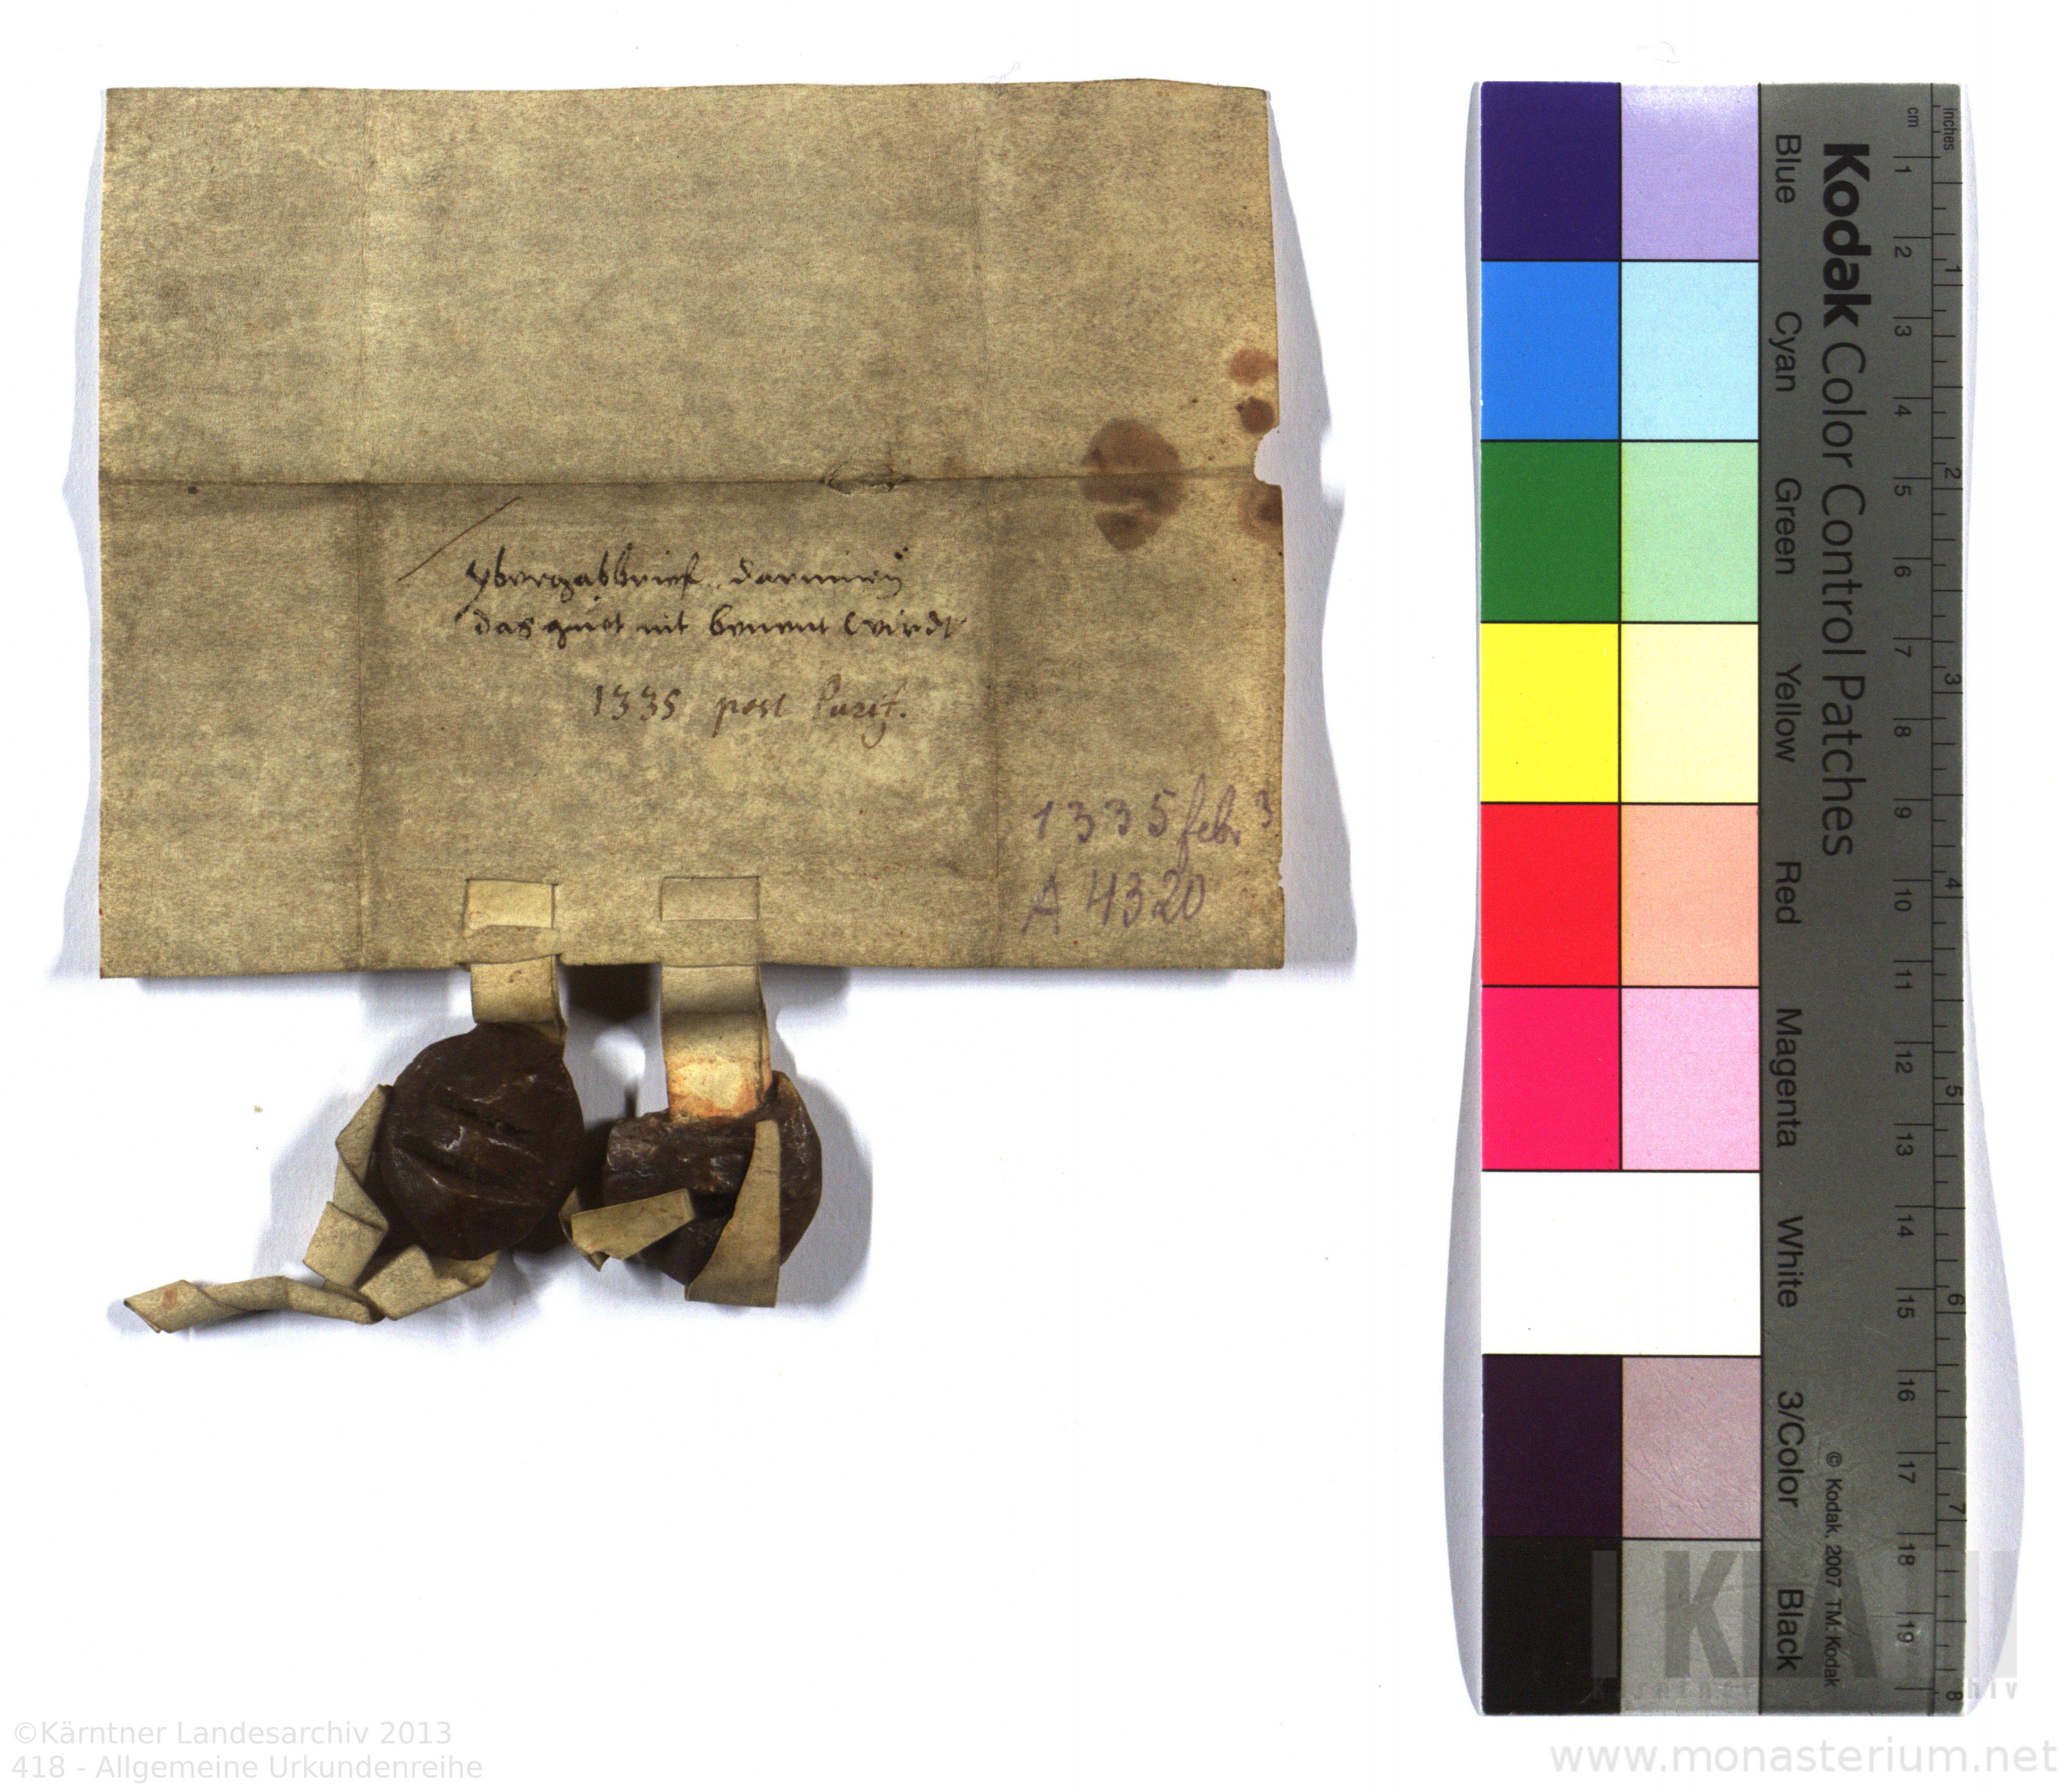 Ybergabbrief darinnen
das guet nit benent wirdt
1335 post Purif.
1335 febr 3
A 4320
Kodak Color Control Patches
Blue Cyan Green Yellow Red Magenta White 3/Color Black
© Kodak, 2007 TM: Kodak
cm 1 2 3 4 5 6 7 8 9 10 11 12 13 14 15 16 17 18 19
inches 1 2 3 4 5 6 7 8
©Kärntner Landesarchiv 2013
418 - Allgemeine Urkundenreihe
www.monasterium.net